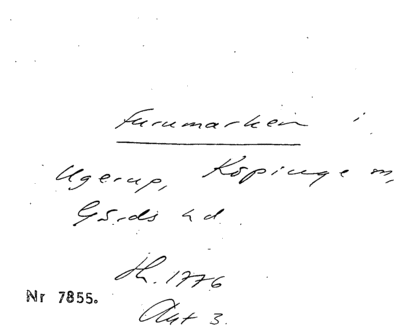 Furumarken i
Ugerup, Köpinge m,
Gärds hd.
th. 1776
Nr 7855.
Akt 3.